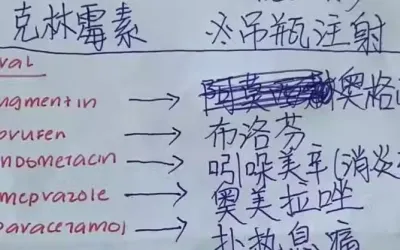 克林霉素 ※吊瓶注射
val
ugmentin → 奥格
brufen → 布洛芬
ndometacin → 吲哚美辛(消炎
meprazole → 奥美拉唑
paracetamol → 扑热息痛